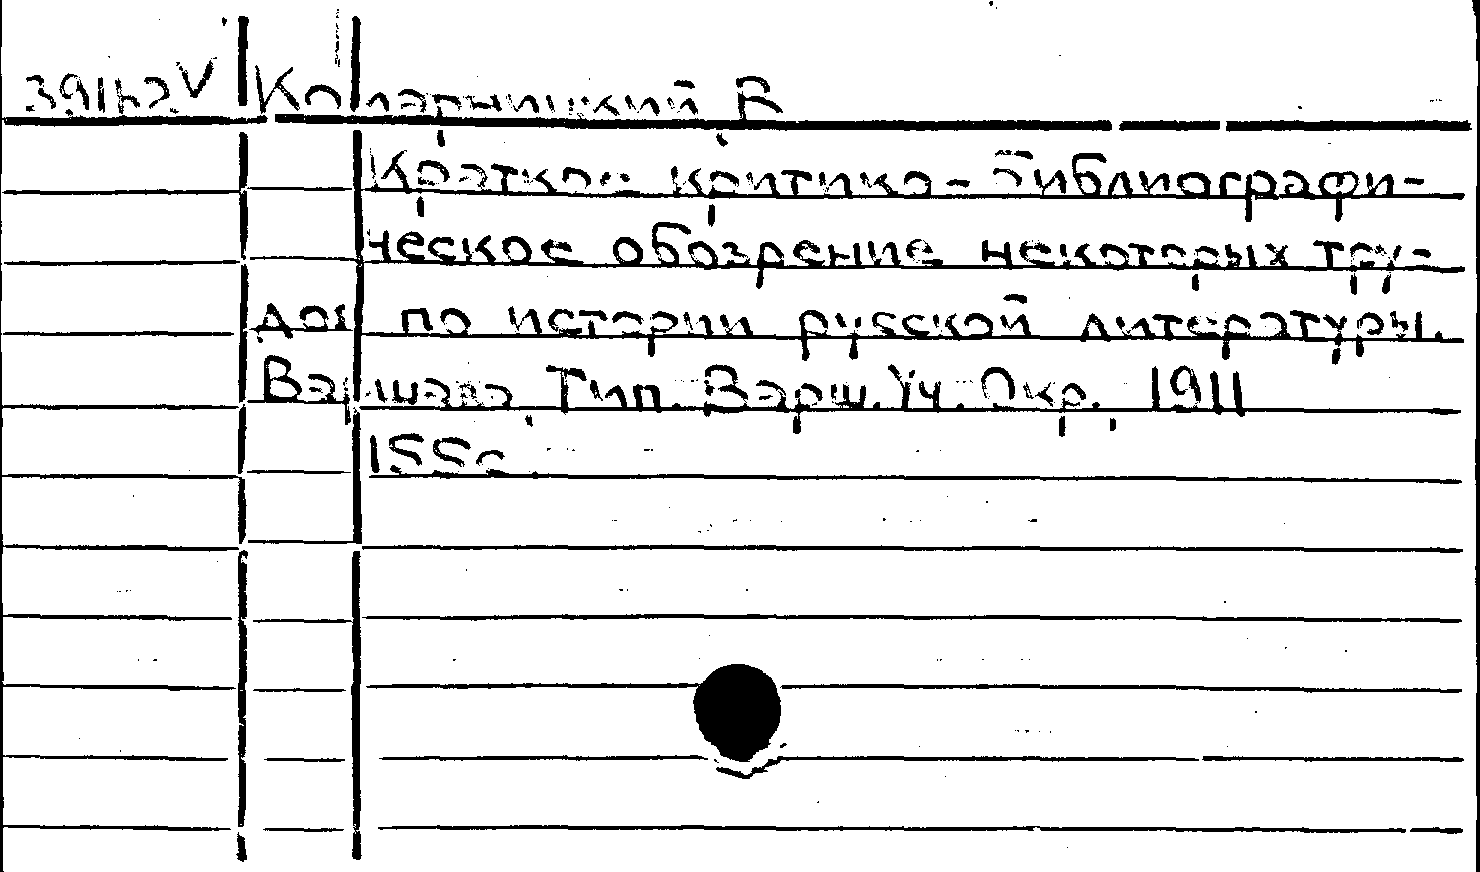 Комарницкий В.
Краткое критико-библиографи-
ческое обозрение некоторых тру-
дов по истории русской литературы.
Варшава, Тип. Варш. Уч. Окр., 1911
155с.